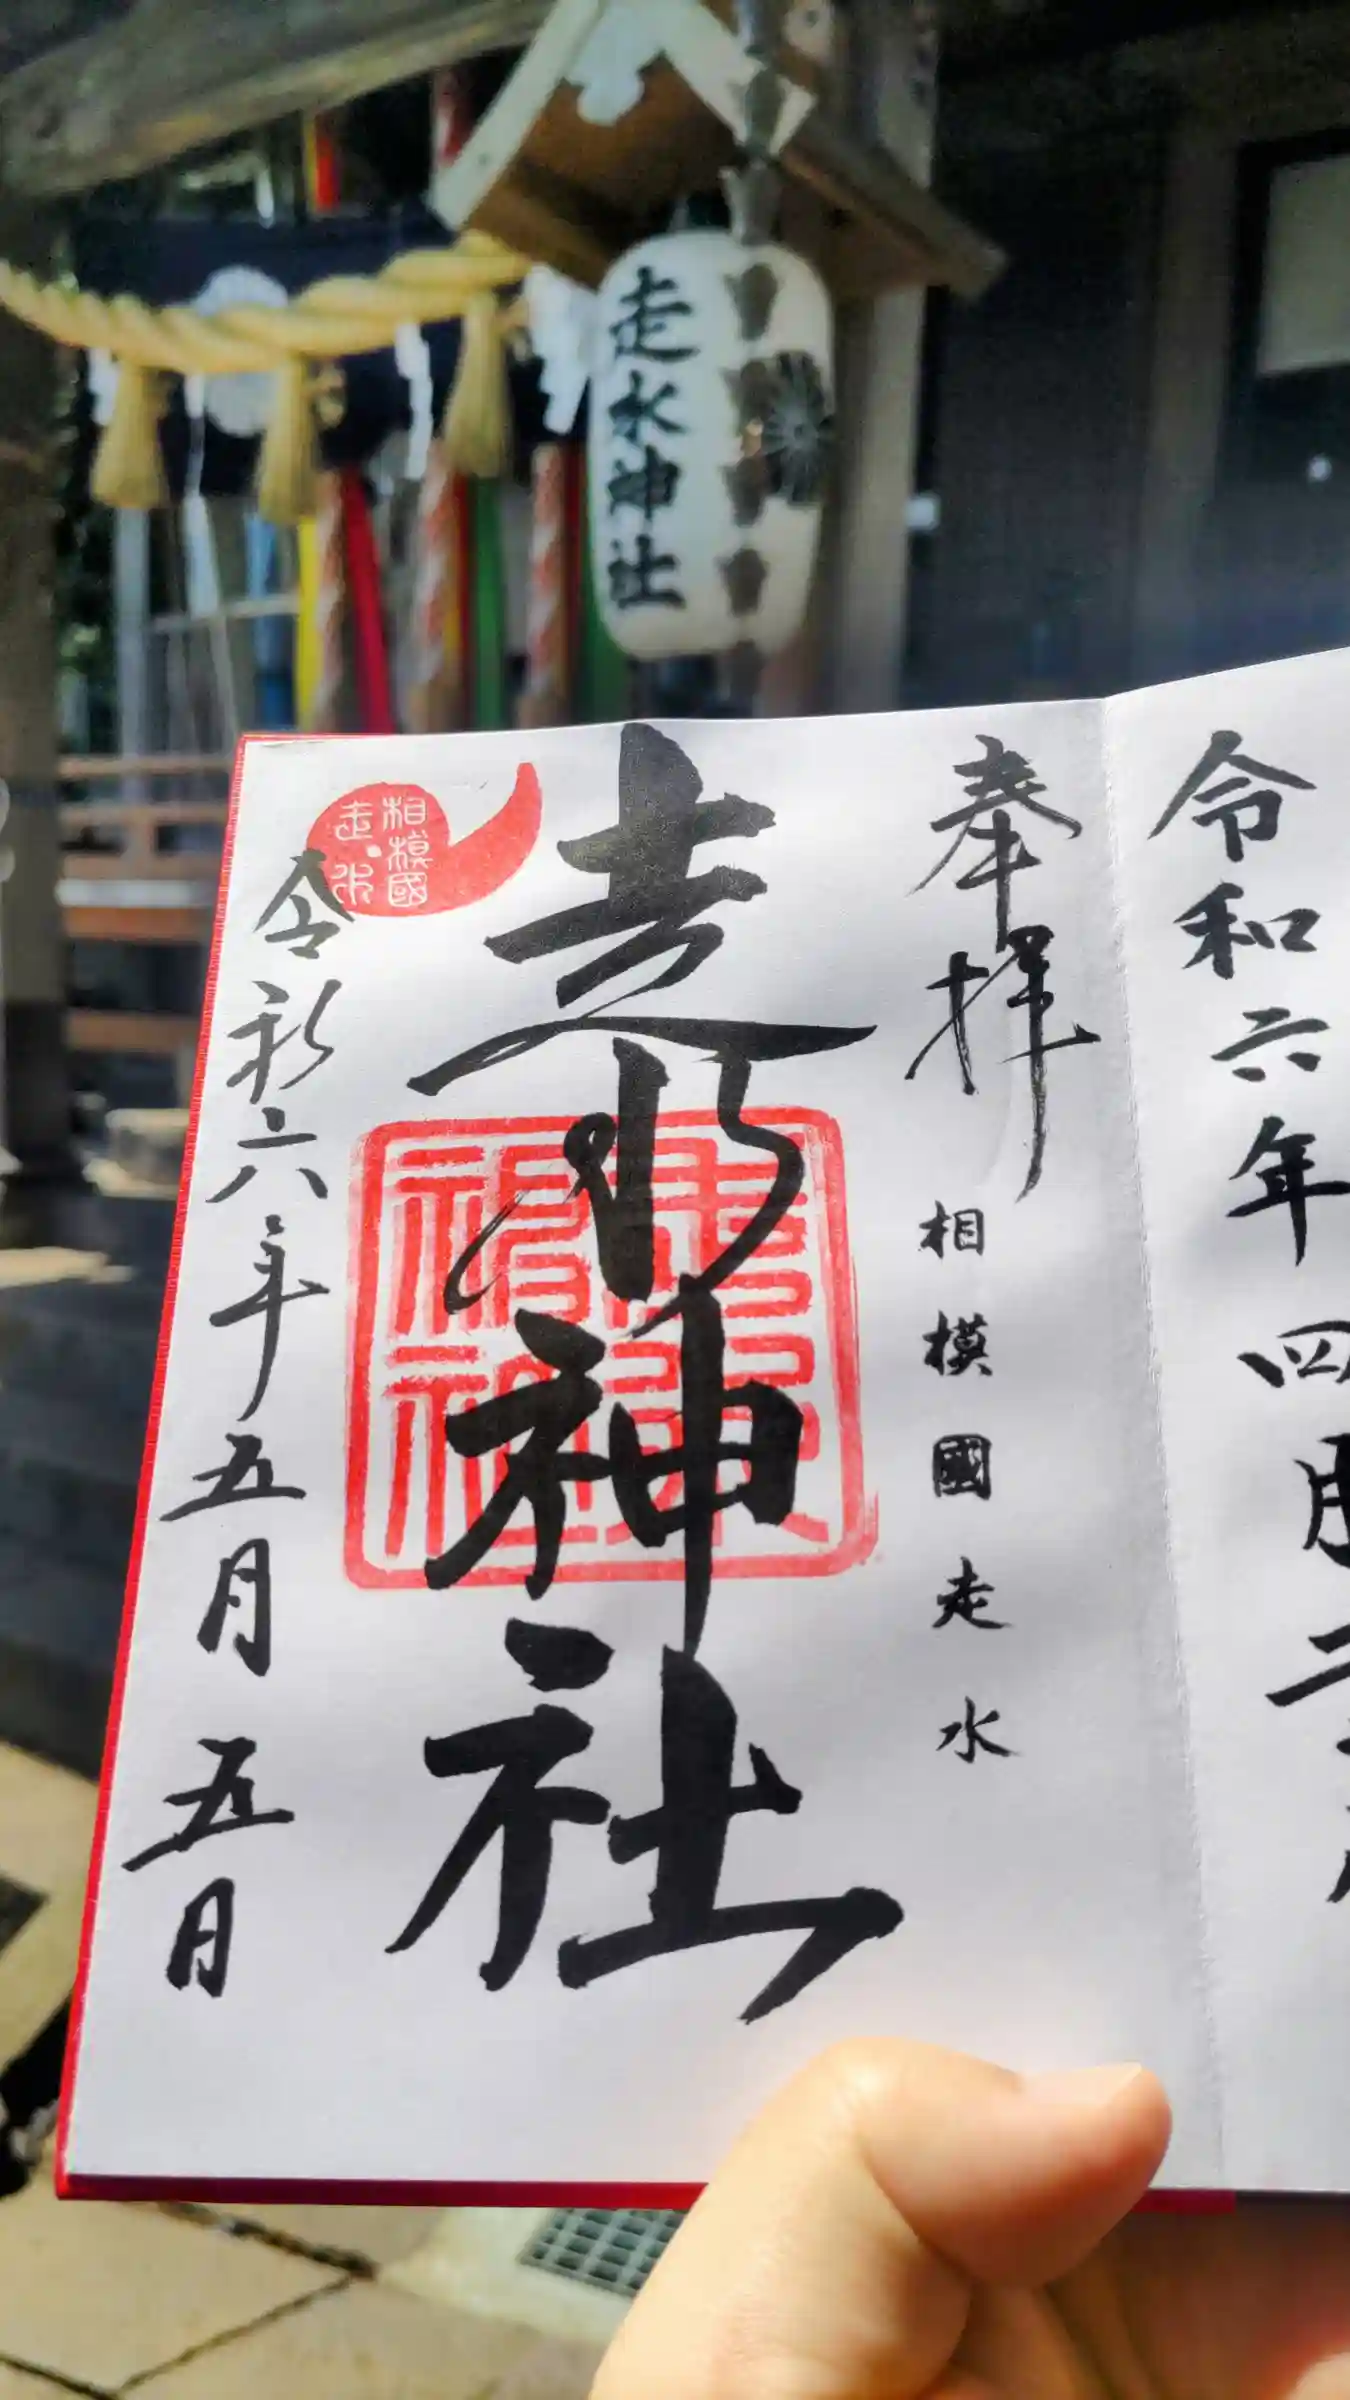 走水神社
令和六年四月二
奉拝
相模國走水
走水神社
相模國
走水
令和六年五月五日